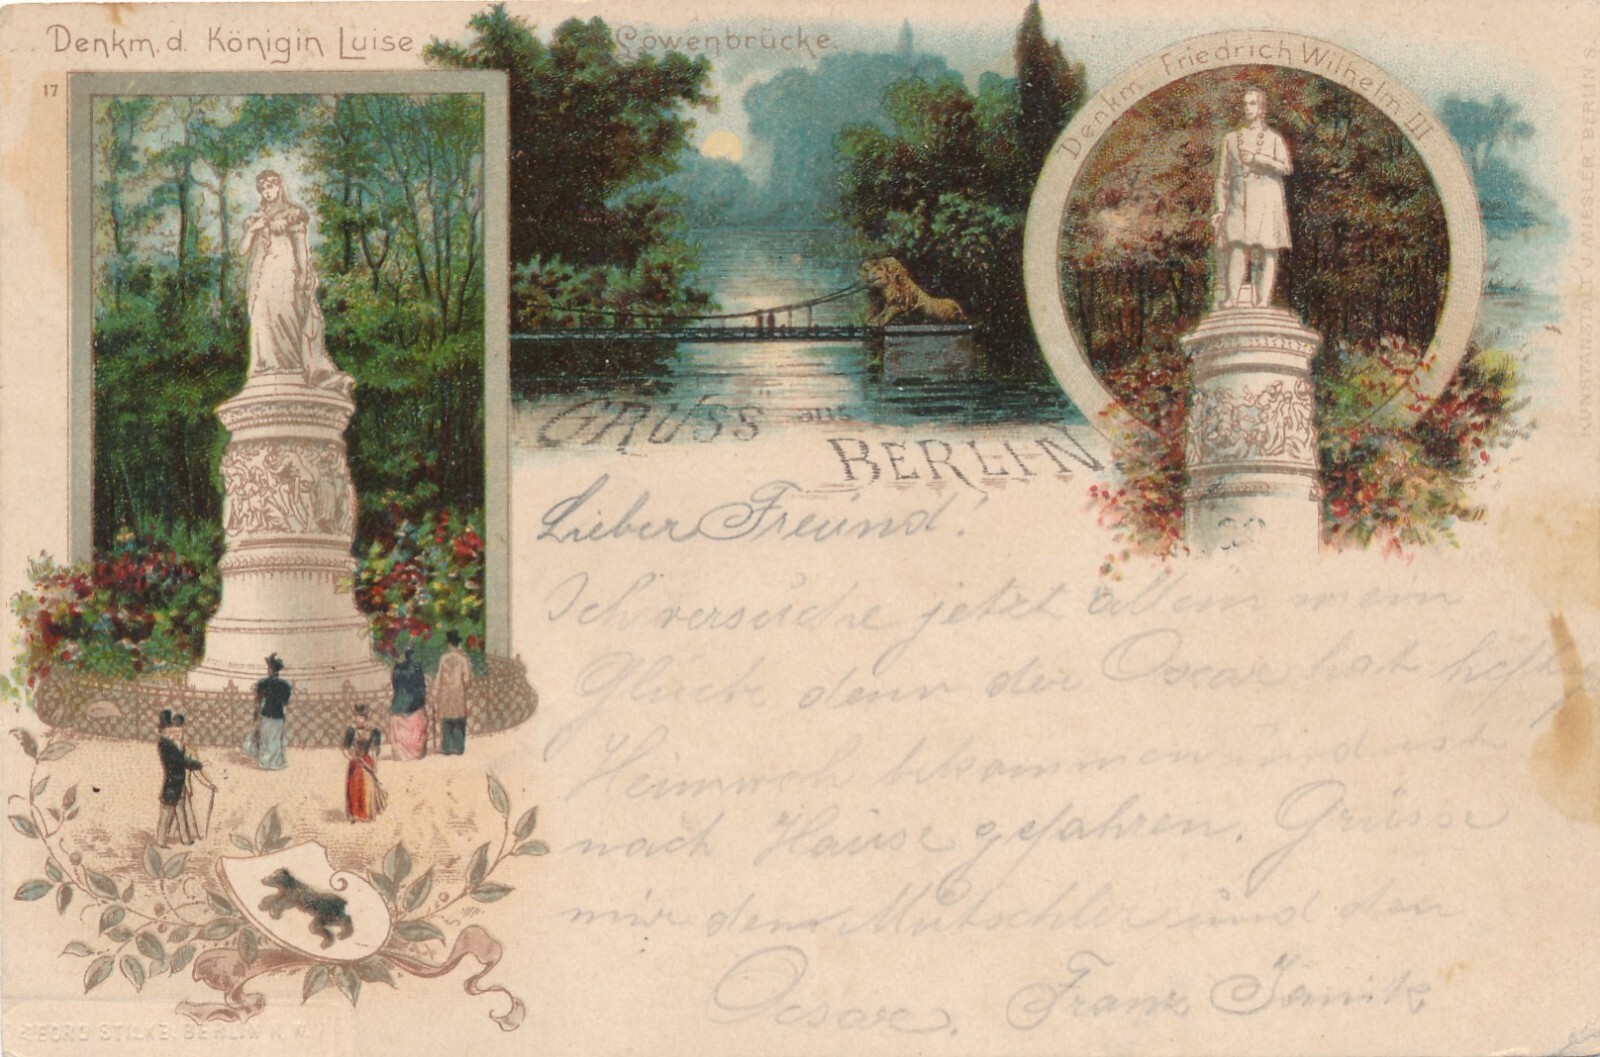 Denkm. d. Königin Luise
17
Löwenbrücke.
Denkm. Friedrich Wilhelm III
KUNSTANSTALT J. MIESLER, BERLIN S.
GRUSS aus
BERLIN
Lieber Freund!
Ich versuche jetzt allein mein
Glück denn der Oscar hat heftig
Heimweh bekommen und ist
nach Hause gefahren. Grüsse
mir den Mutschler und den
Ocsar. Franz Janik
GEORG STILKE, BERLIN N.W.